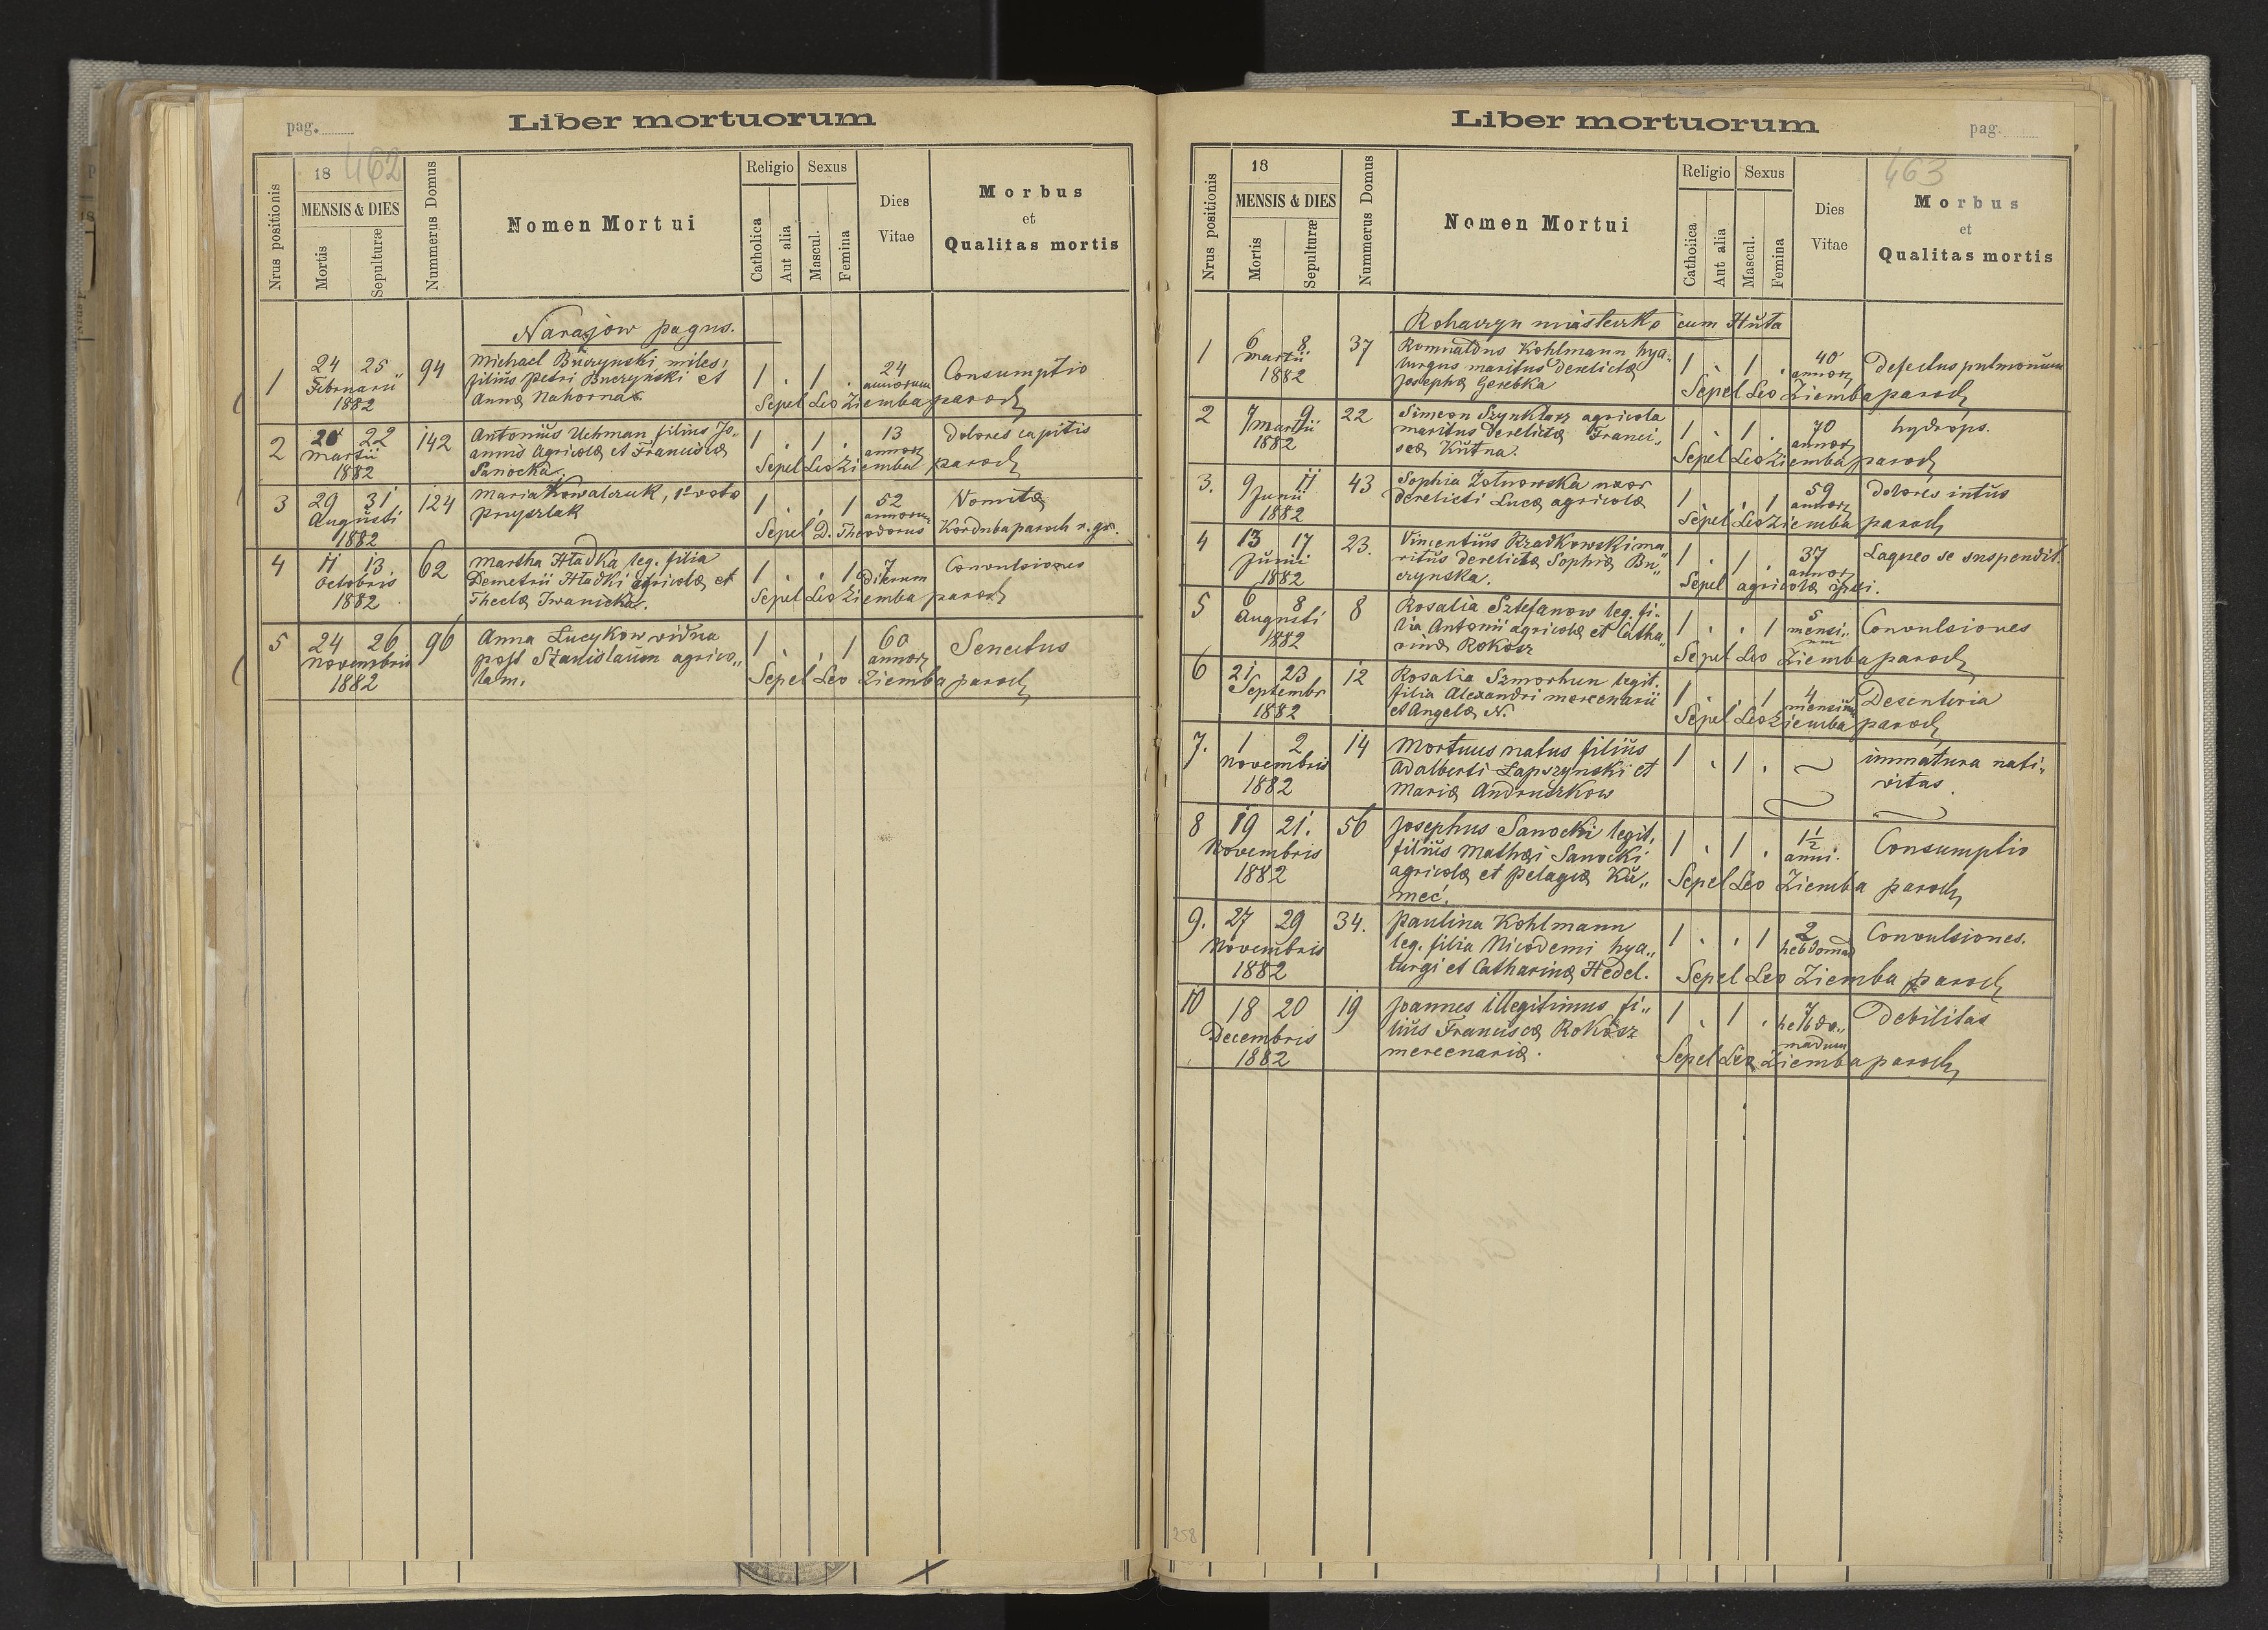 Liber mortuorum
pag.
462
Nrus positionis
18
MENSIS & DIES
Mortis
Sepulturæ
Nummerus Domus
Nomen Mortui
Religio
Catholica
Aut alia
Sexus
Mascul.
Femina
Dies
Vitae
Morbus
et
Qualitas mortis
Narajow pagus.
1 24 25 94 Michael Buczynski miles, 1 . 1 . 24 Consumptio
Februarii filius Petri Buczynski et annorum
1882 Anna Nahorna Sepel Leo Ziemba paroch
2 20 22 142 Antonius Uchman filius Jo„ 1 . 1 . 13 Dolores capitis
Martii annis agricolæ et Franciscæ annor
1882 Sanocka. Sepel Leo Ziemba paroch
3 29 31 124 Maria Kowalczuk, 1º voto 1 . . 1 52 Vomitæ
Augusti Pryszlak annorum
1882 Sepel D. Theodorus Kordubaparoch r. gr.
4 11 13 62 Martha Hładka leg. filia 1 . . 1 7 Convulsiones
Octobris Demetrii Hładki agricolæ et dierum
1882 Theclæ Iwanicka. Sepel Leo Ziemba paroch
5 24 26 96 Anna Lucykow vidua 1 . . 1 60 Senectus
Novembris post Stanislaum agrico„ annor
1882 lam. Sepel Leo Ziemba paroch
Liber mortuorum
pag.
463
Nrus positionis
18
MENSIS & DIES
Mortis
Sepulturæ
Nummerus Domus
Nomen Mortui
Religio
Catholica
Aut alia
Sexus
Mascul.
Femina
Dies
Vitae
Morbus
et
Qualitas mortis
Rohaczyn miasteczko cum Huta
1 6 8 37 Romualdus Kohlmann hya„ 1 . 1 . 40 Defectus pulmonum
Martii lurgus maritus derelictæ annor
1882 Josephæ Gerebka Sepel Leo Ziemba paroch
2 7 9 22 Simeon Szynklarz agricola 1 . 1 . 70 hydrops.
Martii maritus derelictæ Franci„ annor
1882 scæ Kutna. Sepel Leo Ziemba paroch
3. 9 11 43 Sophia Żołnowska uxor 1 . . 1 59 dolores intus
Junii derelicti Lucæ agricolæ annor
1882 Sepel Leo Ziemba paroch
4 13 17 23. Vincentius Rzadkowski ma„ 1 . 1 . 37 Laqueo se suspendit.
Junii ritus derelictæ Sophiæ Bu„ annor
1882 czynska. Sepel agricolæ ipsi.
5 6 8 8 Rosalia Sztefanow leg. fi„ 1 . . 1 5 Convulsiones
Augusti lia Antonii agricolæ et Catha„ mensi„
1882 rinæ Rokosz um
Sepel Leo Ziemba paroch
6 21 23 12 Rosalia Szmorhun legit. 1 . . 1 4 Desenteria
Septembr filia Alexandri mercenarii mensium
1882 et Angelæ N. Sepel Leo Ziemba paroch
7. 1 2 14 Mortuus natus filius 1 . 1 . immatura nati„
Novembris Adalberti Łapszynski et vitas.
1882 Mariæ Andruszkow
8 19 21. 56 Josephus Sanocki legit. 1 . 1 . 1½ Consumptio
Novembris filius Mathæi Sanocki anni.
1882 agricolæ et Pelagiæ Ku„ Sepel Leo Ziemba paroch
meć.
9. 27 29 34. Paulina Kohlmann 1 . . 1 2 Convulsiones.
Novembris leg. filia Nicodemi hya„ hebdomad
1882 lurgi et Catharinæ Hedel. Sepel Leo Ziemba paroch
10 18 20 19 Joannes illegitimus fi„ 1 . 1 . 7 Debilitas
Decembris lius Franciscæ Rokosz hebdo„
1882 mercenariæ. madum
Sepel Leo Ziemba paroch
258